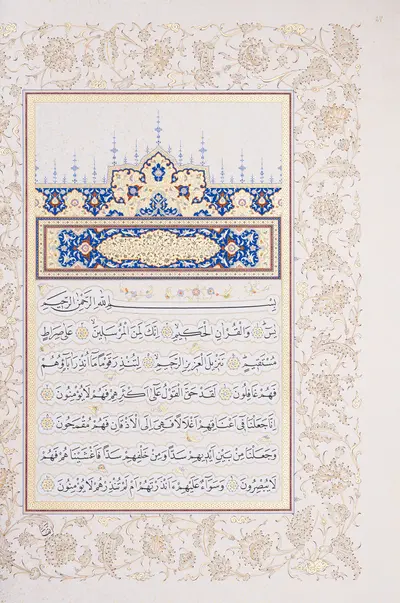 بِسْمِ اللهِ الرَّحْمٰنِ الرَّحیمِ
یٰسٓ وَالْقُرْاٰنِ الْحَکیمِ اِنَّکَ لَمِنَ الْمُرْسَلینَ عَلیٰ صِرَاطٍ
مُسْتَقیمٍ تَنْزیلَ الْعَزیزِ الرَّحیمِ لِتُنْذِرَ قَوْمًا مَا اُنْذِرَ اٰبَاؤُهُمْ
فَهُمْ غَافِلُونَ لَقَدْ حَقَّ الْقَوْلُ عَلیٰ اَکْثَرِهِمْ فَهُمْ لَا یُؤْمِنُونَ
اِنَّا جَعَلْنَا فی اَعْنَاقِهِمْ اَغْلَالًا فَهِیَ اِلَی الْاَذْقَانِ فَهُمْ مُقْمَحُونَ
وَجَعَلْنَا مِنْ بَیْنِ اَیْدیهِمْ سَدًّا وَمِنْ خَلْفِهِمْ سَدًّا فَاَغْشَیْنَاهُمْ فَهُمْ
لَا یُبْصِرُونَ وَسَوَاءٌ عَلَیْهِمْ ءَاَنْذَرْتَهُمْ اَمْ لَمْ تُنْذِرْهُمْ لَا یُؤْمِنُونَ